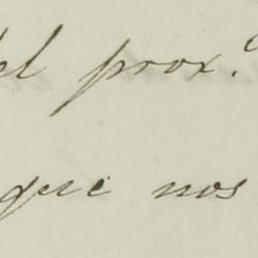 el prox.º
que nos